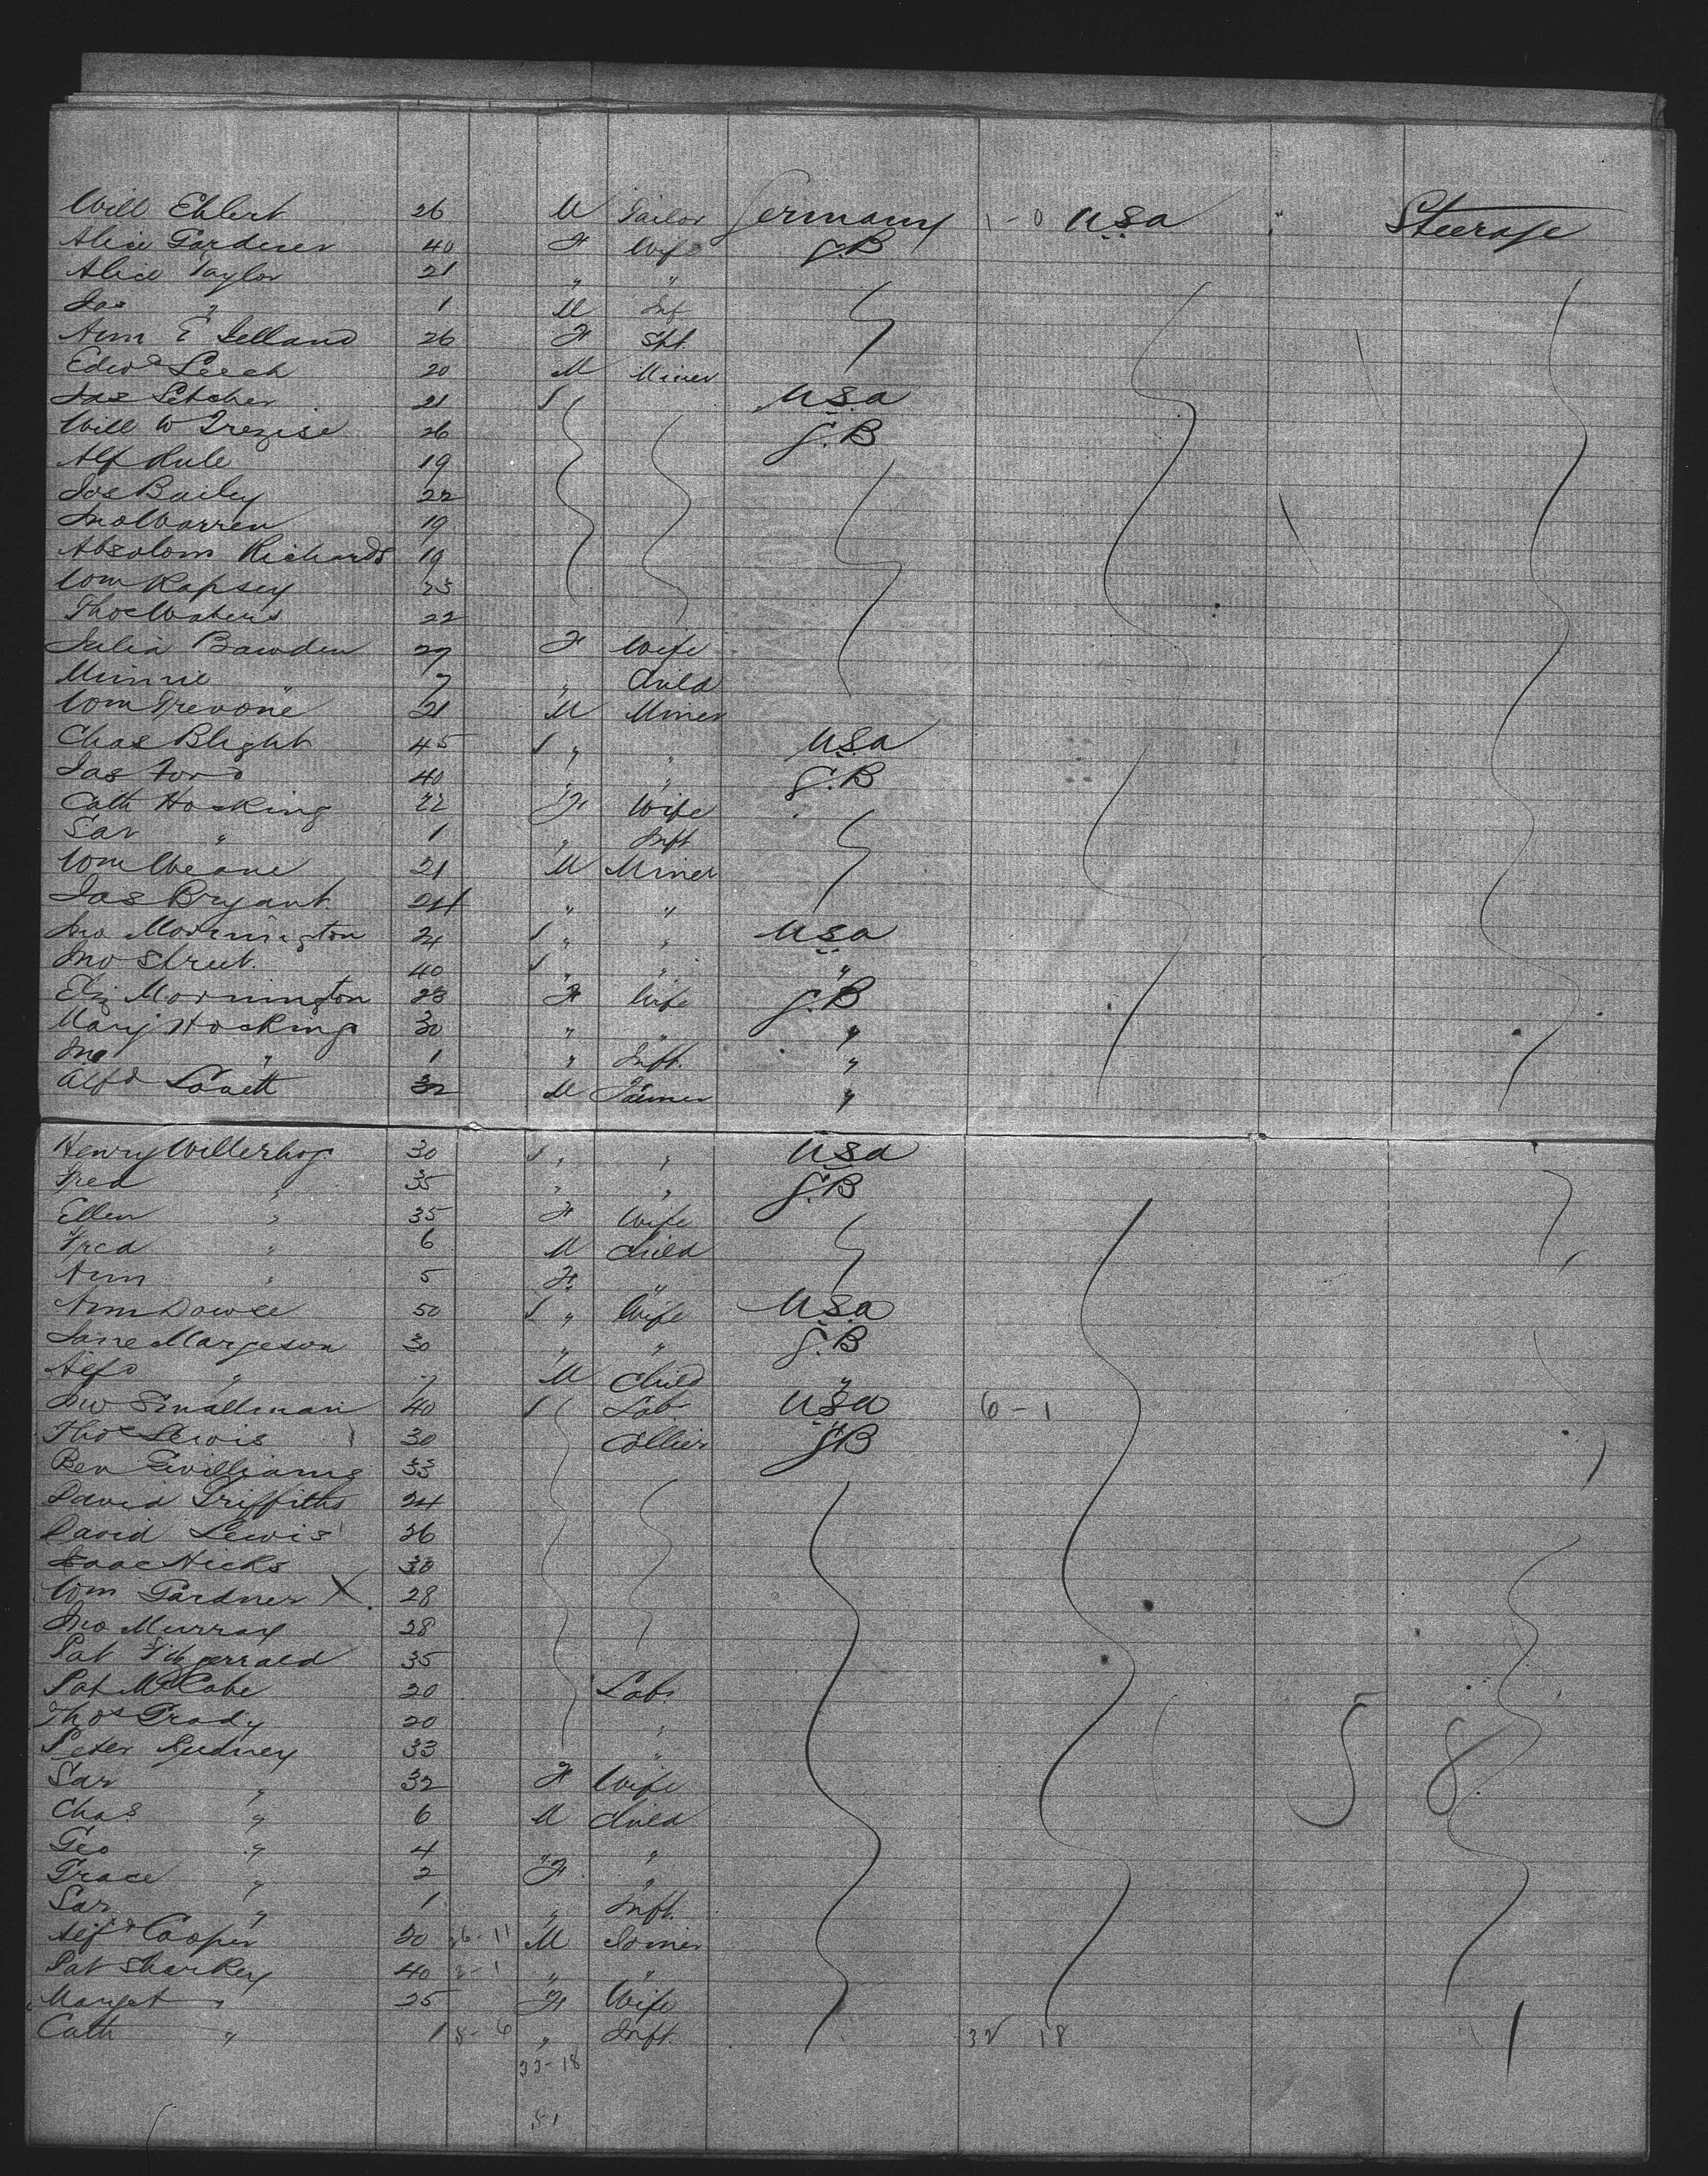 Will Ehlert 26 M Tailor Germany 1-0 U.S.a Steerage
Alice Gardener 40 F Wife G.B
Alice Taylor 21 " "
Jas " 1 M Inf
Ann E 26 F Spt.
Edwd Leech 20 M Miner
Jas Letcher 21 U.S.a
Will W Trezise 26 G.B
Alf Rule 19
Jos Bailey 22
Jno Warren 19
Absolom Richards 19
Wm Rapsey 23
Thos Waters 22
Julia Bawden 27 F Wife
Minnie " 7 " Child
Wm Trevone 21 M Miner
Chas Blight 45 " " U.S.a
Jas Ford 40 " " G.B
Cath Hocking 22 F Wife
Sar " 1 " Inft
Wm 21 M Miner
Jas Bryant 24 " "
Jno Mornington 24 " " U.S.a
Jno Street 40 " " "
Eliz Mornington 28 F Wife G.B
Mary Hocking 30 " " "
Jno " 1 " Inft. "
Alfd Lovett 32 M "
Henry Willerhog 30 " " U.S.a
Fred " 35 " " G.B
Ellen " 35 F Wife
Fred " 6 M Child
Ann " 5 F "
Ann Dowse 50 " Wife U.S.a
Jane Margeson 30 " " G.B
Alfd " 7 M Child "
Jno Smallman 40 Lab. U.S.a 6-1
Thos Lewis 30 Collier G.B
Ben Gwilliams 33
David Griffiths 24
David Lewis 26
Isaac Hicks 30
Wm Gardner X 28
Jno Murray 28
Pat Fitzgerrald 35
Pat McCabe 20 Lab.
Thos Grady 20 "
Peter 33 "
Sar " 32 F Wife
Chas " 6 M Child
Geo " 4 " "
Grace " 2 F "
Sar " 1 " Inft.
Alfd Cooper 20 26-11 M
Pat Sharkey 40 " "
Marget " 25 F Wife
Cath " 1 8-6 " Inft. 32 18
58